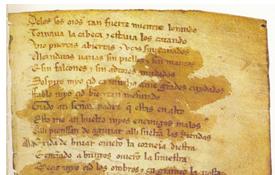 Delos sos oios tan fuerte mientre lorando
Tornaua la cabeça & estaua los catando
Vio puertas abiertas & vços sin cañados
Alcandaras uazias sin pielles & sin mantos
E sin falcones & sin adtores mudados
Sospiro myo çid ca mucho auie grandes cuydados
Fablo myo çid bien & tan mesurado
Grado ati señor padre que estas en alto
Esto me an buelto myos enemigos malos
Alli pienssan de aguiiar alli sueltan las riendas
Ala exida de biuar ouieron la corneia diestra
E entrando a burgos ouieron la siniestra
Meçio myo çid los ombros & en grameo la tiesta